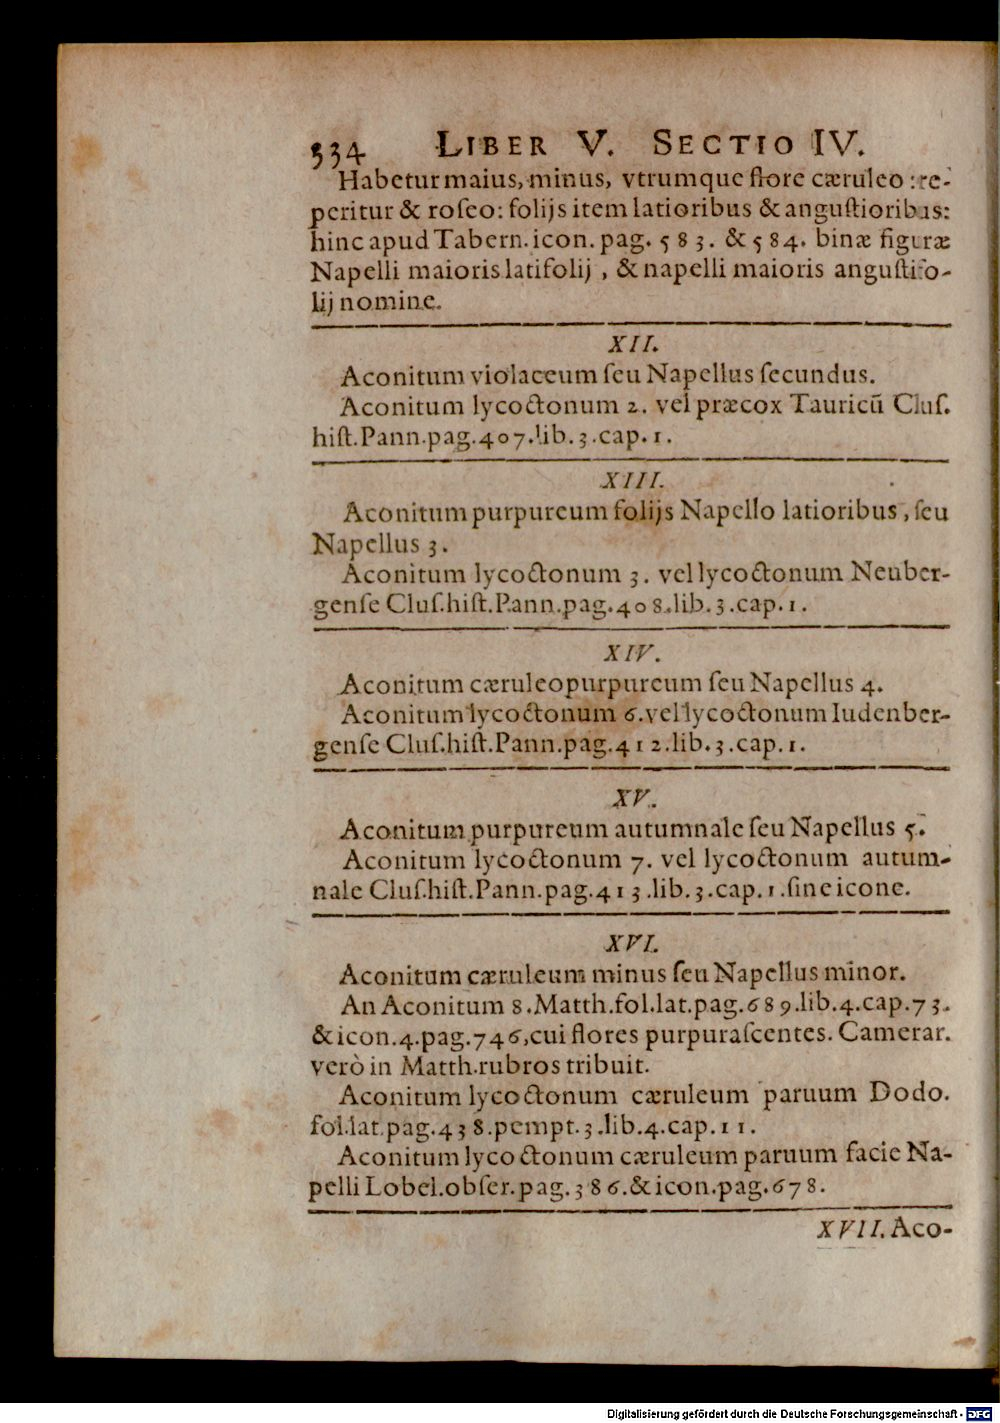 334 LIBER V. SECTIO IV.
Habetur maius, minus, vtrumque flore cæruleo: re-
peritur & roſeo: folijs item latioribus & anguſtioribus:
hinc apud Tabern. icon. pag. 583. & 584. binæ figuræ
Napelli maioris latifolij, & napelli maioris anguſtifo-
lij nomine.
XII.
Aconitum violaceum ſeu Napellus ſecundus.
Aconitum lycoctonum 2. vel præcox Tauricũ Cluſ.
hiſt. Pann. pag. 407. lib. 3. cap. 1.
XIII.
Aconitum purpureum folijs Napello latioribus, ſeu
Napellus 3.
Aconitum lycoctonum 3. vel lycoctonum Neuber-
genſe Cluſ. hiſt. Pann. pag. 408. lib. 3. cap. 1.
XIV.
Aconitum cæruleopurpureum ſeu Napellus 4.
Aconitum lycoctonum 6. vel lycoctonum Iudenber-
genſe Cluſ. hiſt. Pann. pag. 412. lib. 3. cap. 1.
XV.
Aconitum purpureum autumnale ſeu Napellus 5.
Aconitum lycoctonum 7. vel lycoctonum autum-
nale Cluſ. hiſt. Pann. pag. 413. lib. 3. cap. 1. ſine icone.
XVI.
Aconitum cæruleum minus ſeu Napellus minor.
An Aconitum 8. Matth. fol. lat. pag. 689. lib. 4. cap. 73.
& icon. 4. pag. 746, cui flores purpuraſcentes. Camerar.
verò in Matth. rubros tribuit.
Aconitum lycoctonum cæruleum paruum Dodo.
fol. lat. pag. 438. pempt. 3. lib. 4. cap. 11.
Aconitum lycoctonum cæruleum paruum facie Na-
pelli Lobel. obſer. pag. 386. & icon. pag. 678.
XVII. Aco-
Digitalisierung gefördert durch die Deutsche Forschungsgemeinschaft - DFG